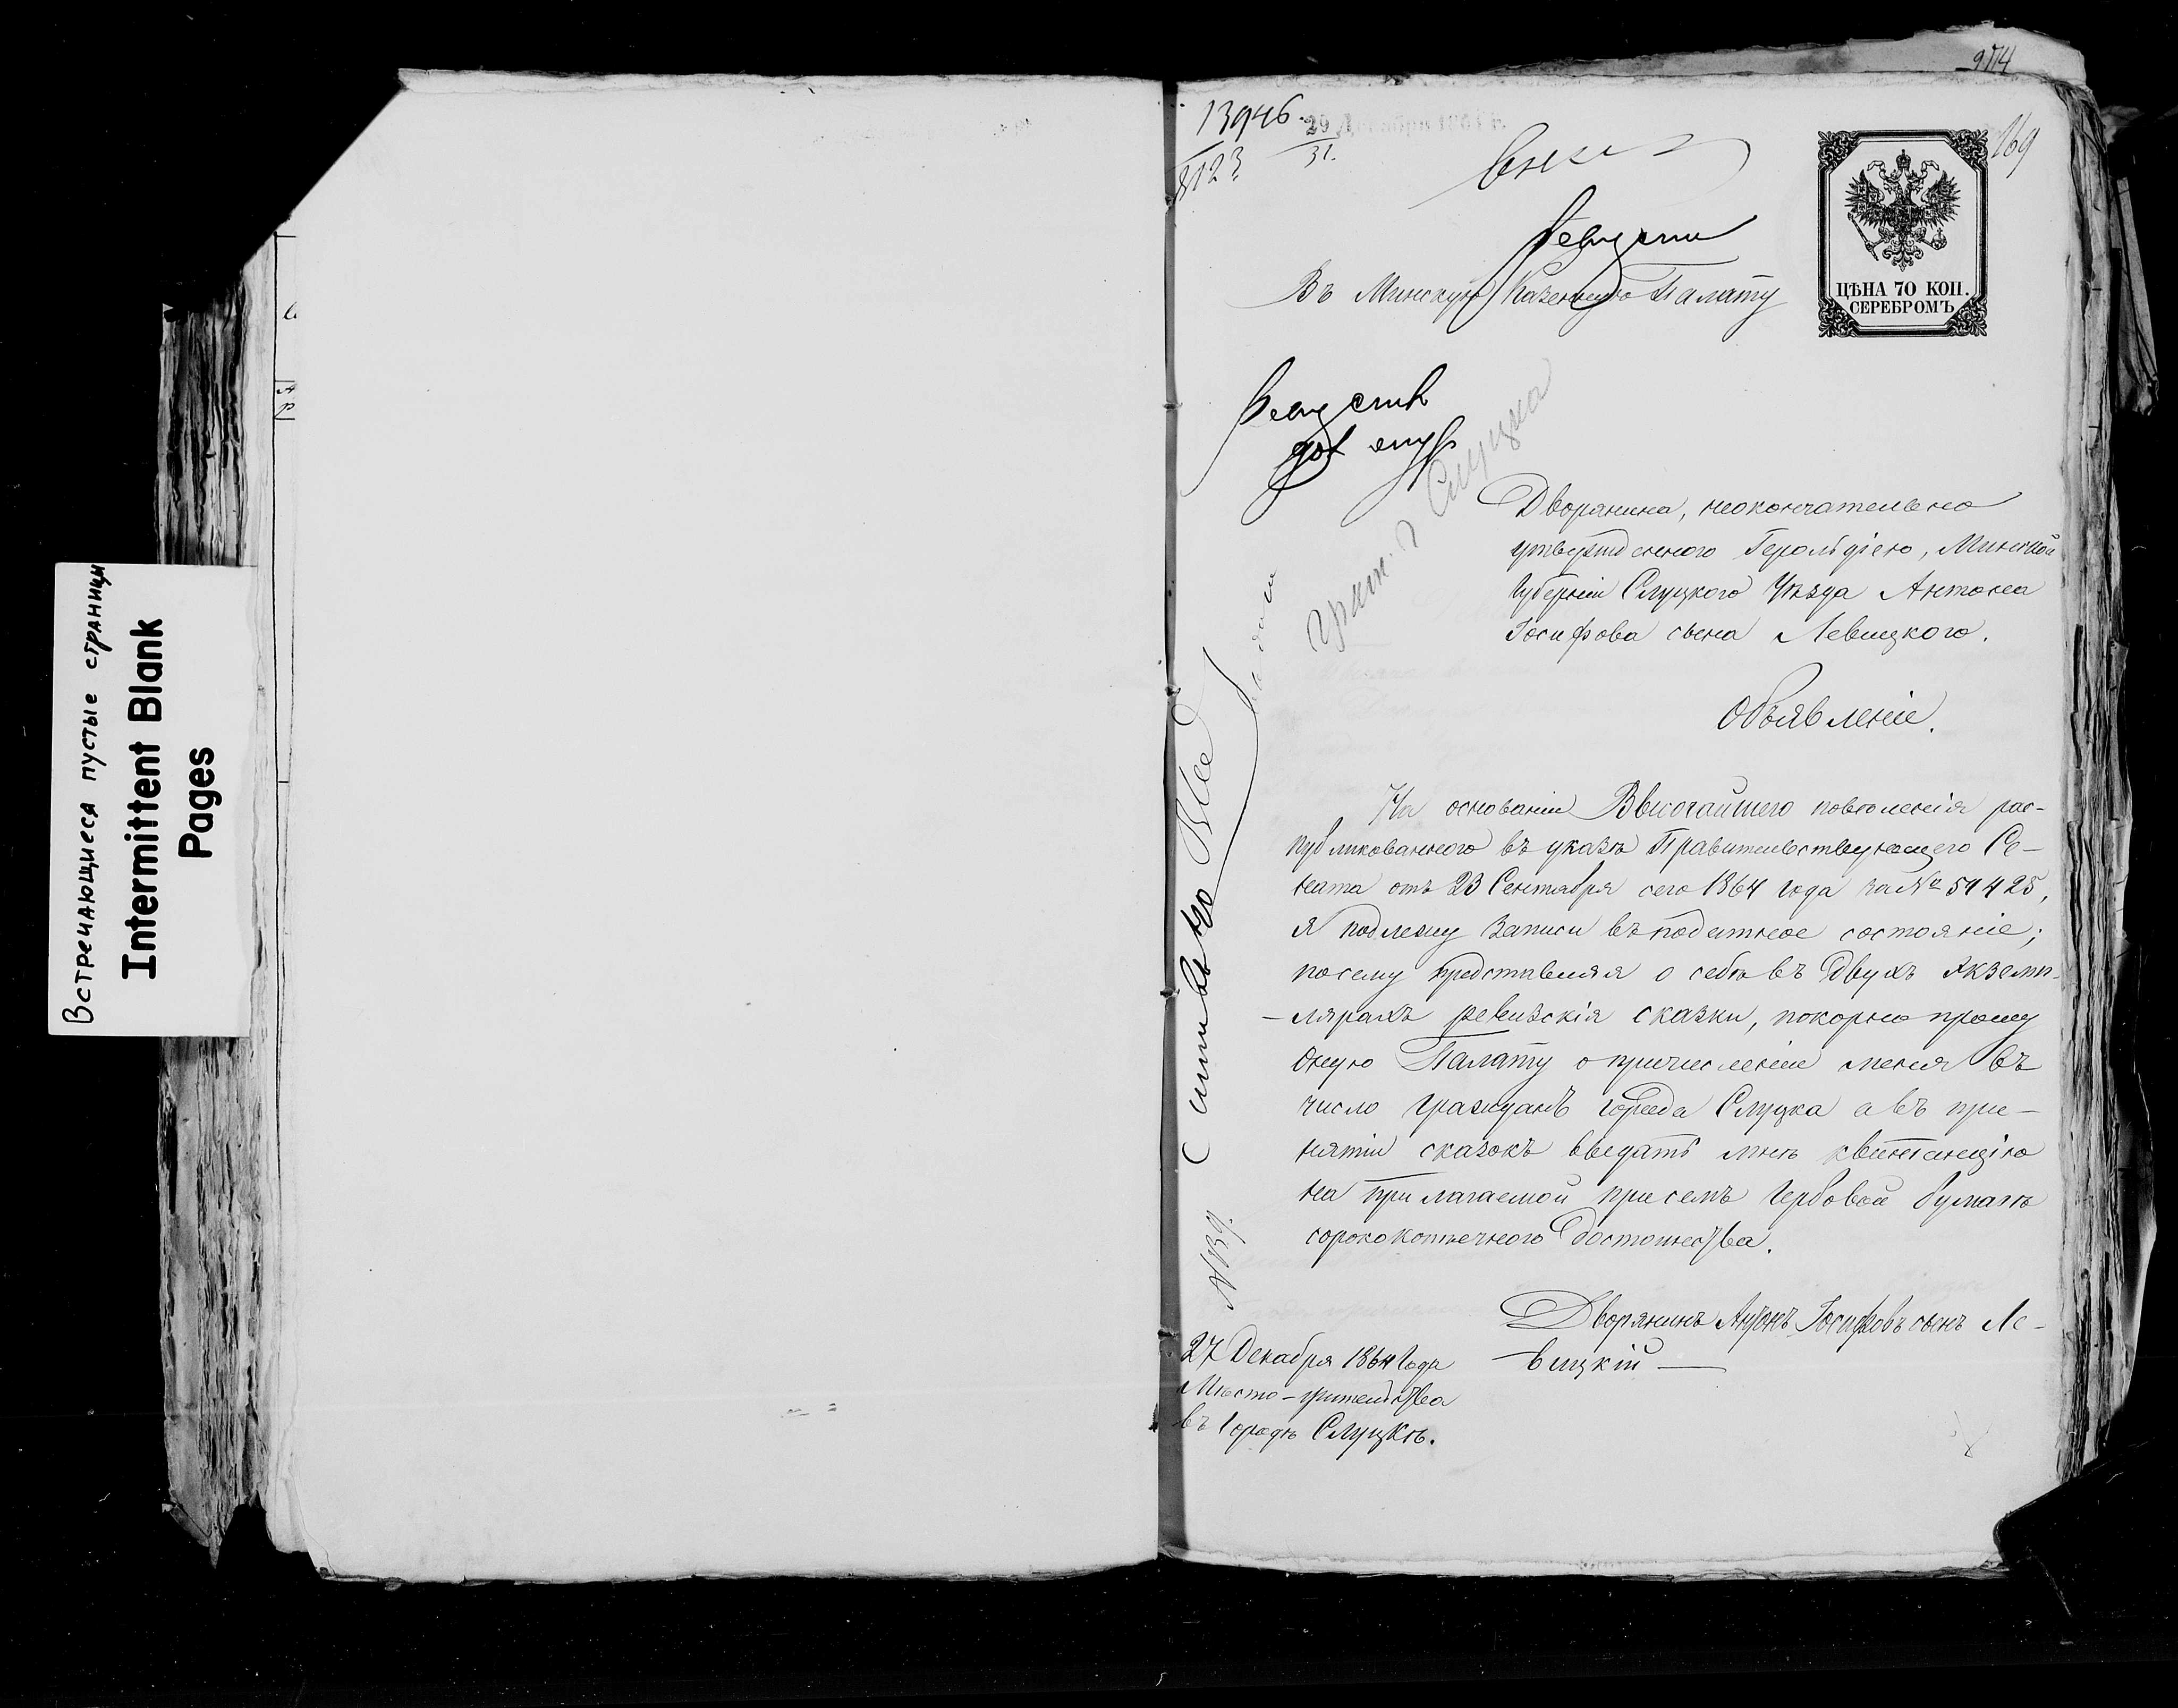 Встречающиеся пустые страници
Intermittent Blank
Pages
974
13946.
29 Декабря 1864 г.
31.
8123
169
ЦѢНА 70 КОП.
СЕРЕБРОМЪ
Въ Минскую Казенную Палату
Граж. г Слуцка
Дворянина, неокончательно
утвержденного Герольдіею, Минской
Губерніи Слуцкого Уѣзда Антона
Іосифова сына Левицкого.
Объявленіе.
На основаніи Высочайшего повеленія рас-
публикованного въ указѣ Правительствующего Се-
ната отъ 23 Сентября сего 1864 года за № 59425,
я подлежу записи въ податное состояніе;
посему представляя о себѣ въ двухъ экземп-
-лярахъ ревизскія сказки, покорно прошу
оную Палату о причисленіи меня въ
число гражданъ города Слуцка а въ при-
нятіи сказокъ выдать мнѣ квитанцію
на прилагаемой присемъ Гербовой бумагѣ
сорококопѣечного достоинства.
Дворянинъ Антонъ Іосифовъ сынъ Ле-
вицкій
27 Декабря 1864 Года
Мѣсто-жительства
въ Городѣ Слуцкѣ.